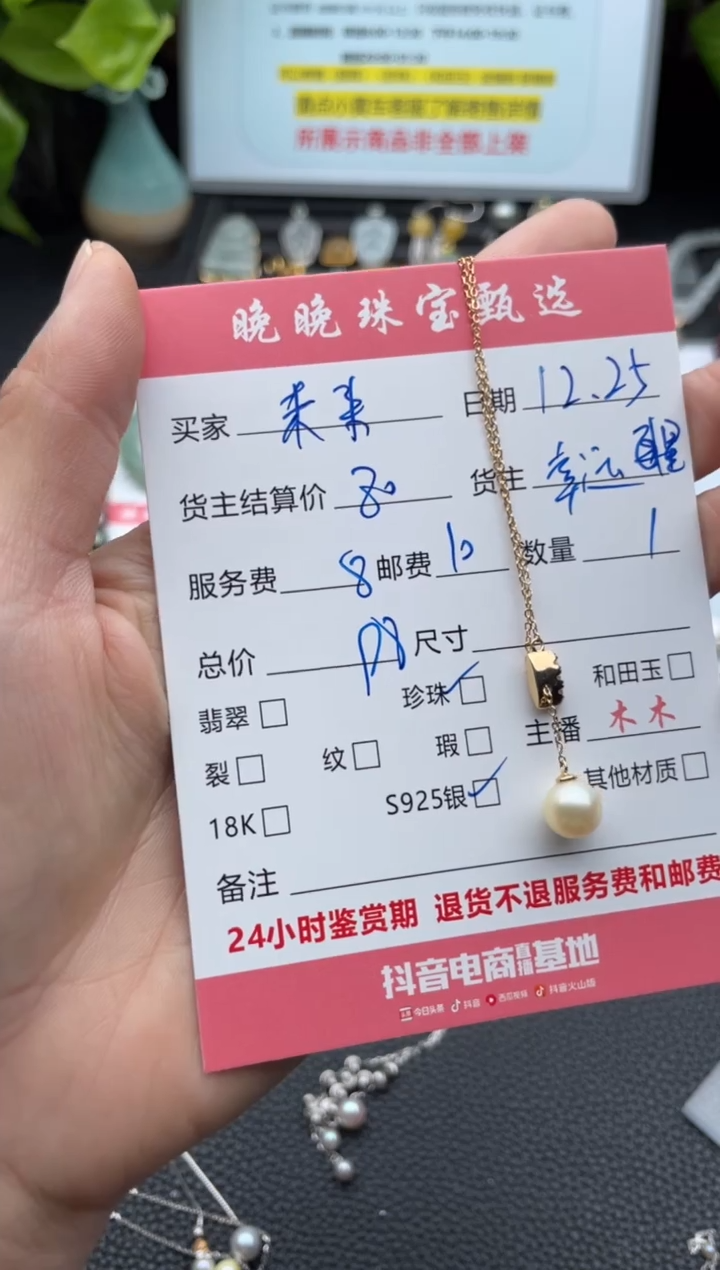 所展示商品非全部上架
晚晚珠宝甄选
买家 来来 日期 12.25
货主结算价 80 货主 幸运
服务费 8 邮费 10 数量 1
总价 98 尺寸
翡翠 珍珠 和田玉
裂 纹 瑕 主播 木木
18K S925银 其他材质
备注
24小时鉴赏期 退货不退服务费和邮费
抖音电商直播基地
今日头条 抖音 西瓜视频 抖音火山版